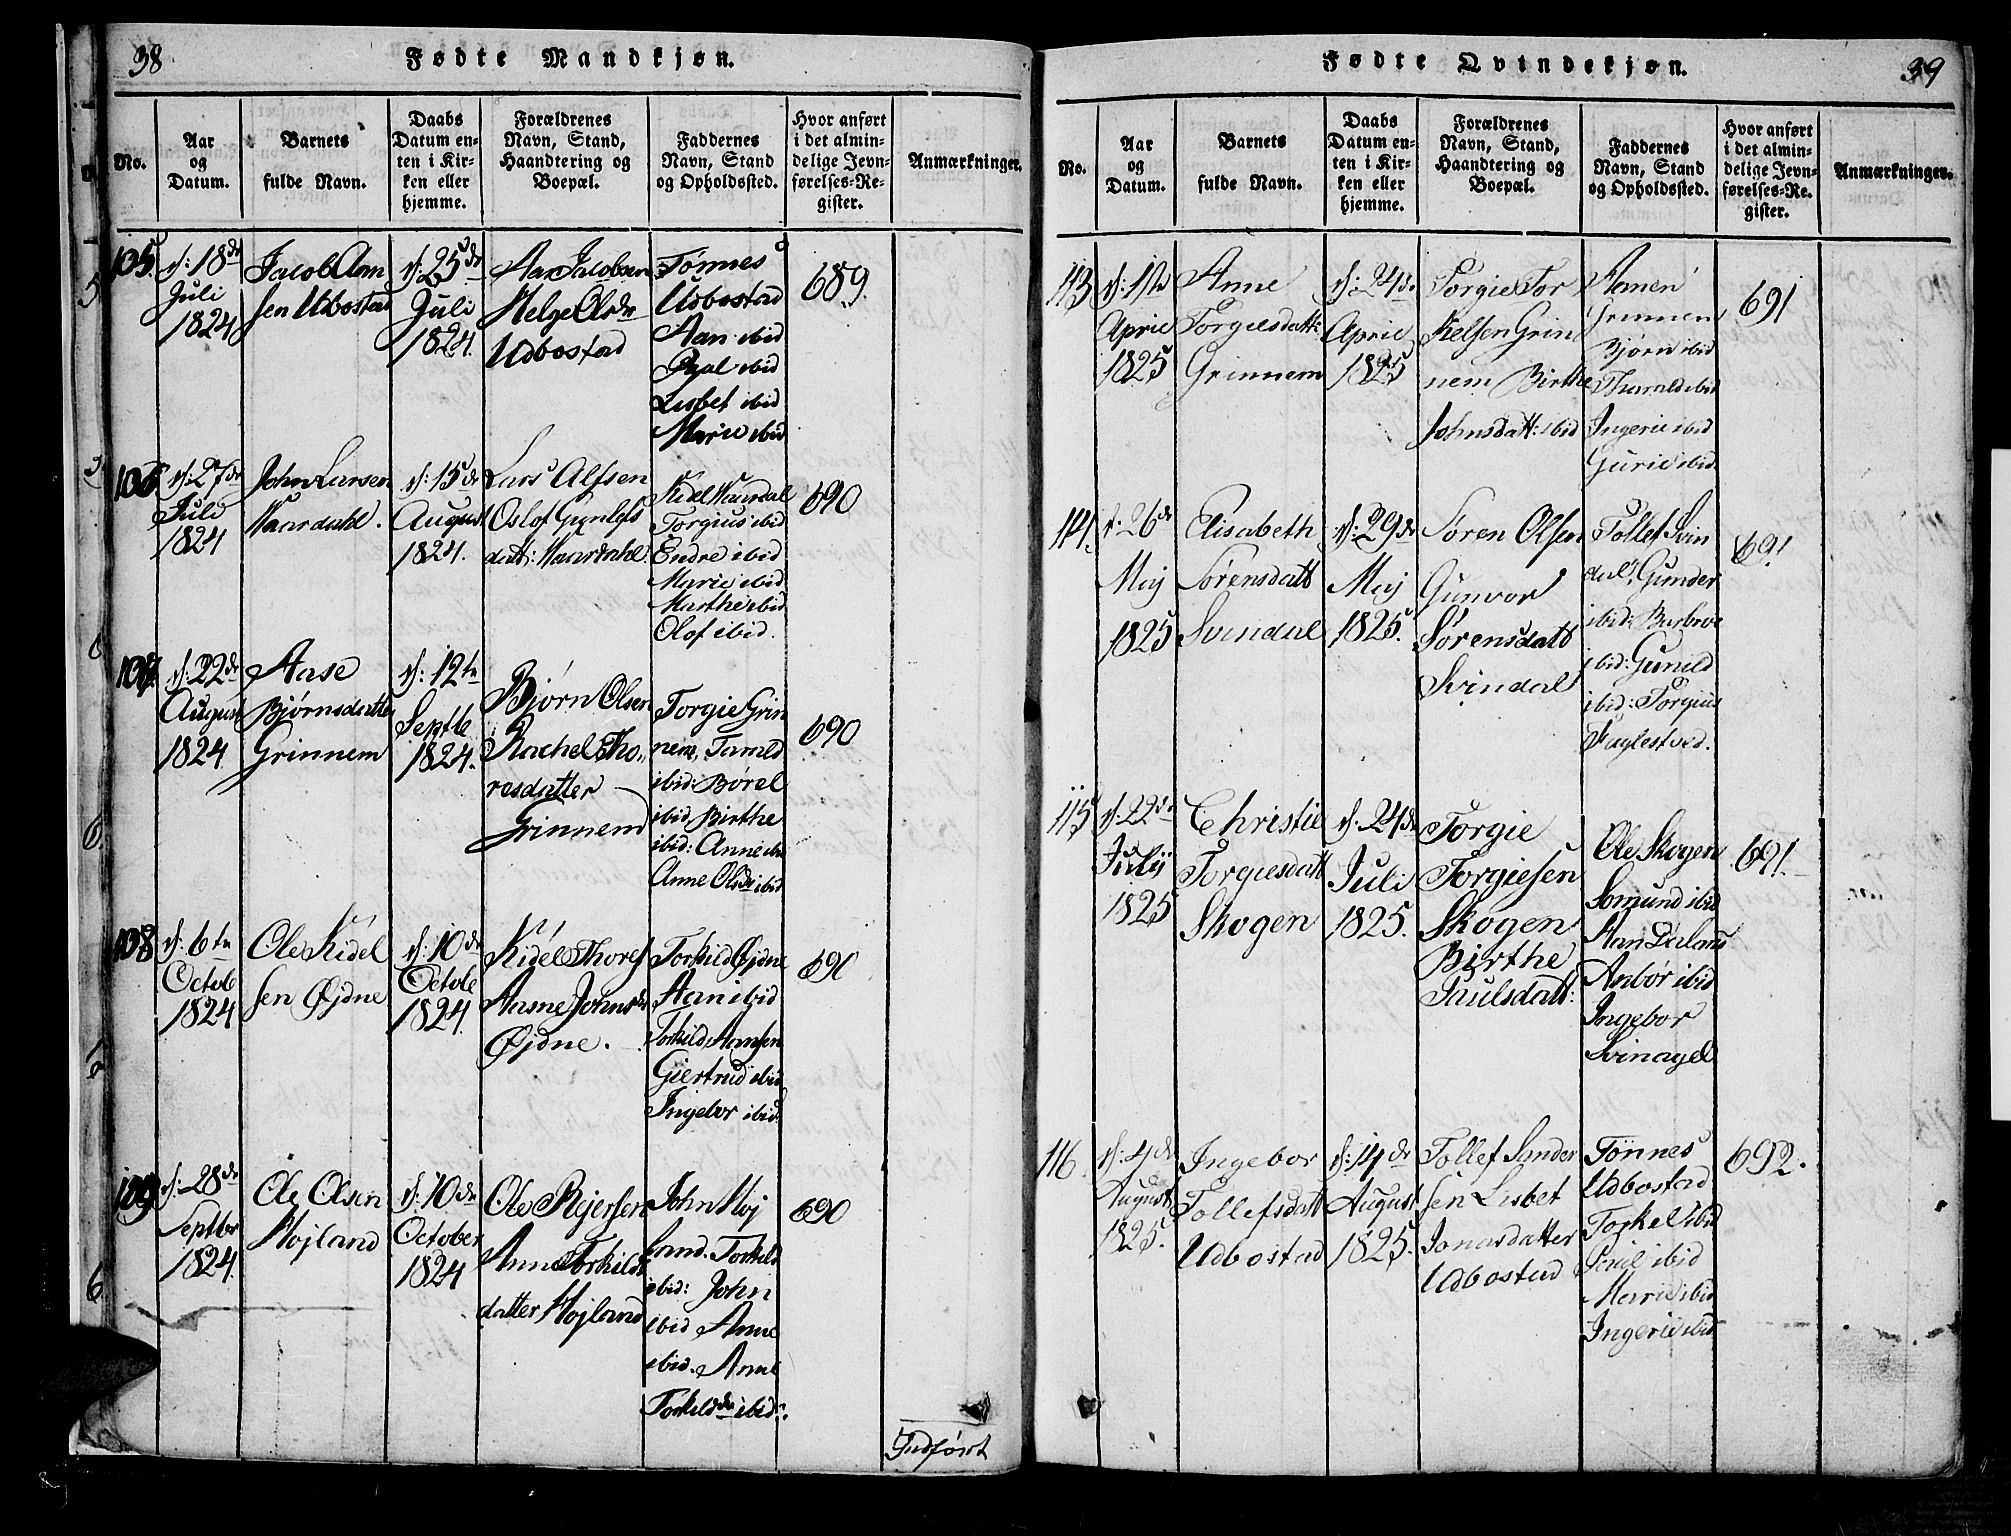 38
Fødte Mandkjøn.
No.
Aar
og
Datum.
Barnets
fulde Navn.
Daabs
Datum en-
ten i Kir-
ken eller
hjemme.
Forældrenes
Navn, Stand,
Haandtering og
Boepæl.
Faddernes
Navn, Stand
og Opholdssted.
Hvor anført
i det almin-
delige Jevn-
førelses-Re-
gister.
Anmærkninger.
105.
d: 18de
Juli
1824
Jacob Aan
sen Udbostad
d: 25de
Juli
1824.
Aan Jacobsen
Helge Olsdr
Udbostad
Tønnes
Udbostad
Aan ibid
Lisbet ibid
Marie ibid
689.
106
d: 27de
Juli
1824
John Larsen
Haardahl.
d: 15de
August
1824.
Lars Alfsen
Oslof Gunlefs
datt: Haardahl
Kidel Haardal
Torgius ibid
Endre ibid
Marie ibid
Marthe ibid
Olof ibid.
690
107.
d: 22de
August
1824
Aase
Bjørnsdatter
Grinnem
d: 12te
Septb
1824.
Bjørn Olsen
Rachel Tho,,
resdatter
Grinnem
Torgie Grin
nem, Tarald
ibid: Børel
ibid, Birthe
ibid: Anne ibid
Anne Olsdr ibid
690
108
d: 6te
Octob
1824
Ole Kidel
sen Øjdne
d: 10de
Octob
1824.
Kidel Thores
Aasne Johnsdr
Øjdne.
Torkild Øjdne
Aan ibid
Torkild Aansen
Giertrud ibid
Ingebor ibid
690
109
d: 28de
Septbr
1824.
Ole Olsen
Højland
d: 10de
October
1824
Ole Rejersen
Anne Torkilds
datter Højland
John Høj
land. Torkild
ibid: John
ibid Anne
ibid. Anne
Torkildsdr ibid.
690
Indført
39
Fødte Qvindekjøn.
No.
Aar
og
Datum.
Barnets
fulde Navn.
Daabs
Datum en-
ten i Kir-
ken eller
hjemme.
Forældrenes
Navn, Stand,
Haandtering og
Boepæl.
Faddernes
Navn, Stand
og Opholdssted.
Hvor anført
i det almin-
delige Jevn-
førelses-Re-
gister.
Anmærkninger.
113
April
1825
Anne
Torgiesdatt:
Grinnem
d: 24de
April
1825
Torgie Tor
kelsen Grin
nem Birthe
Johnsdatt: ibid
Aanen
Grinnem
Bjørn ibid
Tharald ibid
Ingerie ibid
Gurie ibid
691
114.
d: 26de
Maj
1825
Elisabeth
Sørensdatt
Svindal
d: 29de
Maj
1825.
Søren Olsen
Gunvor
Sørensdatt
Svindal
Tollef Svin
dal, Gunder
ibid: Barbroe
ibid: Gunild
ibid: Torgius
Fuglestved.
691
115
d: 22de
Julij
1825
Christie
Torgiesdatt
Skogen
d. 24de
Juli
1825.
Torgie
Torgiesen
Skogen
Birthe
Paulsdatt:
Ole Skogen
Aomund ibid
Anbør ibid
Ingebor
Svinagel
691.
116
d: 4de
August
1825.
Ingebor
Tollefsdatt
Udbostad
d: 14de
August
1825.
Tollef Sander
sen Lisbet
Jonasdatter
Udbostad
Tønnes
Udbostad
Torkel ibid
Marie ibid
Ingerie ibid
692.